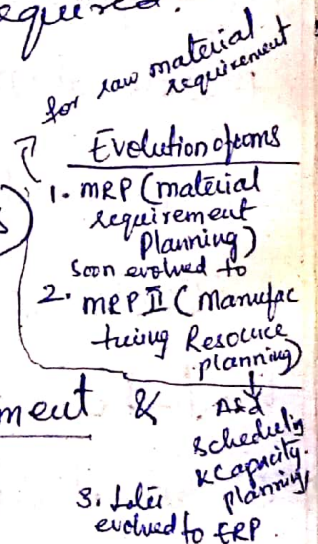 equired.
for raw material
requirement
Evolution of
1. MRP (material
requirement
Planning)
Soon evolved to
2. MRP II (Manufac
turing Resource
planning)
ment &
scheduling
& Capacity
planning
3. Later
evolved to ERP.